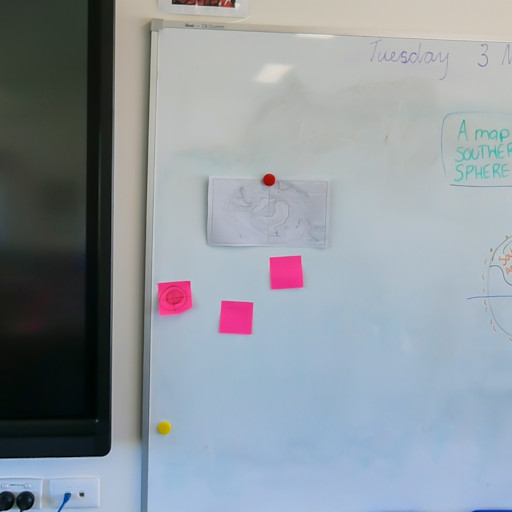 Tuesday 3 M
A map
SOUTHER
SPHERE